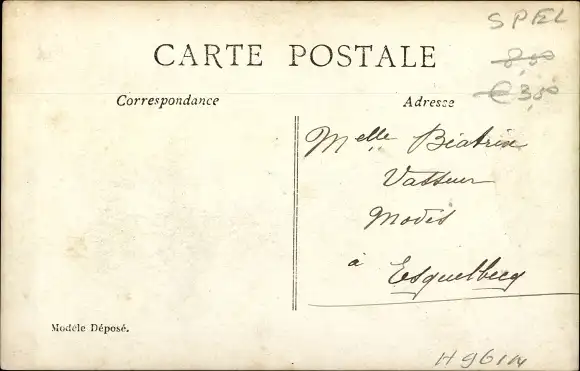 SPEL
8,00
€ 3,80
CARTE POSTALE
Correspondance
Adresse
Melle Béatrix
Vasseur
Modes
à Esquelbecq
Modèle Déposé.